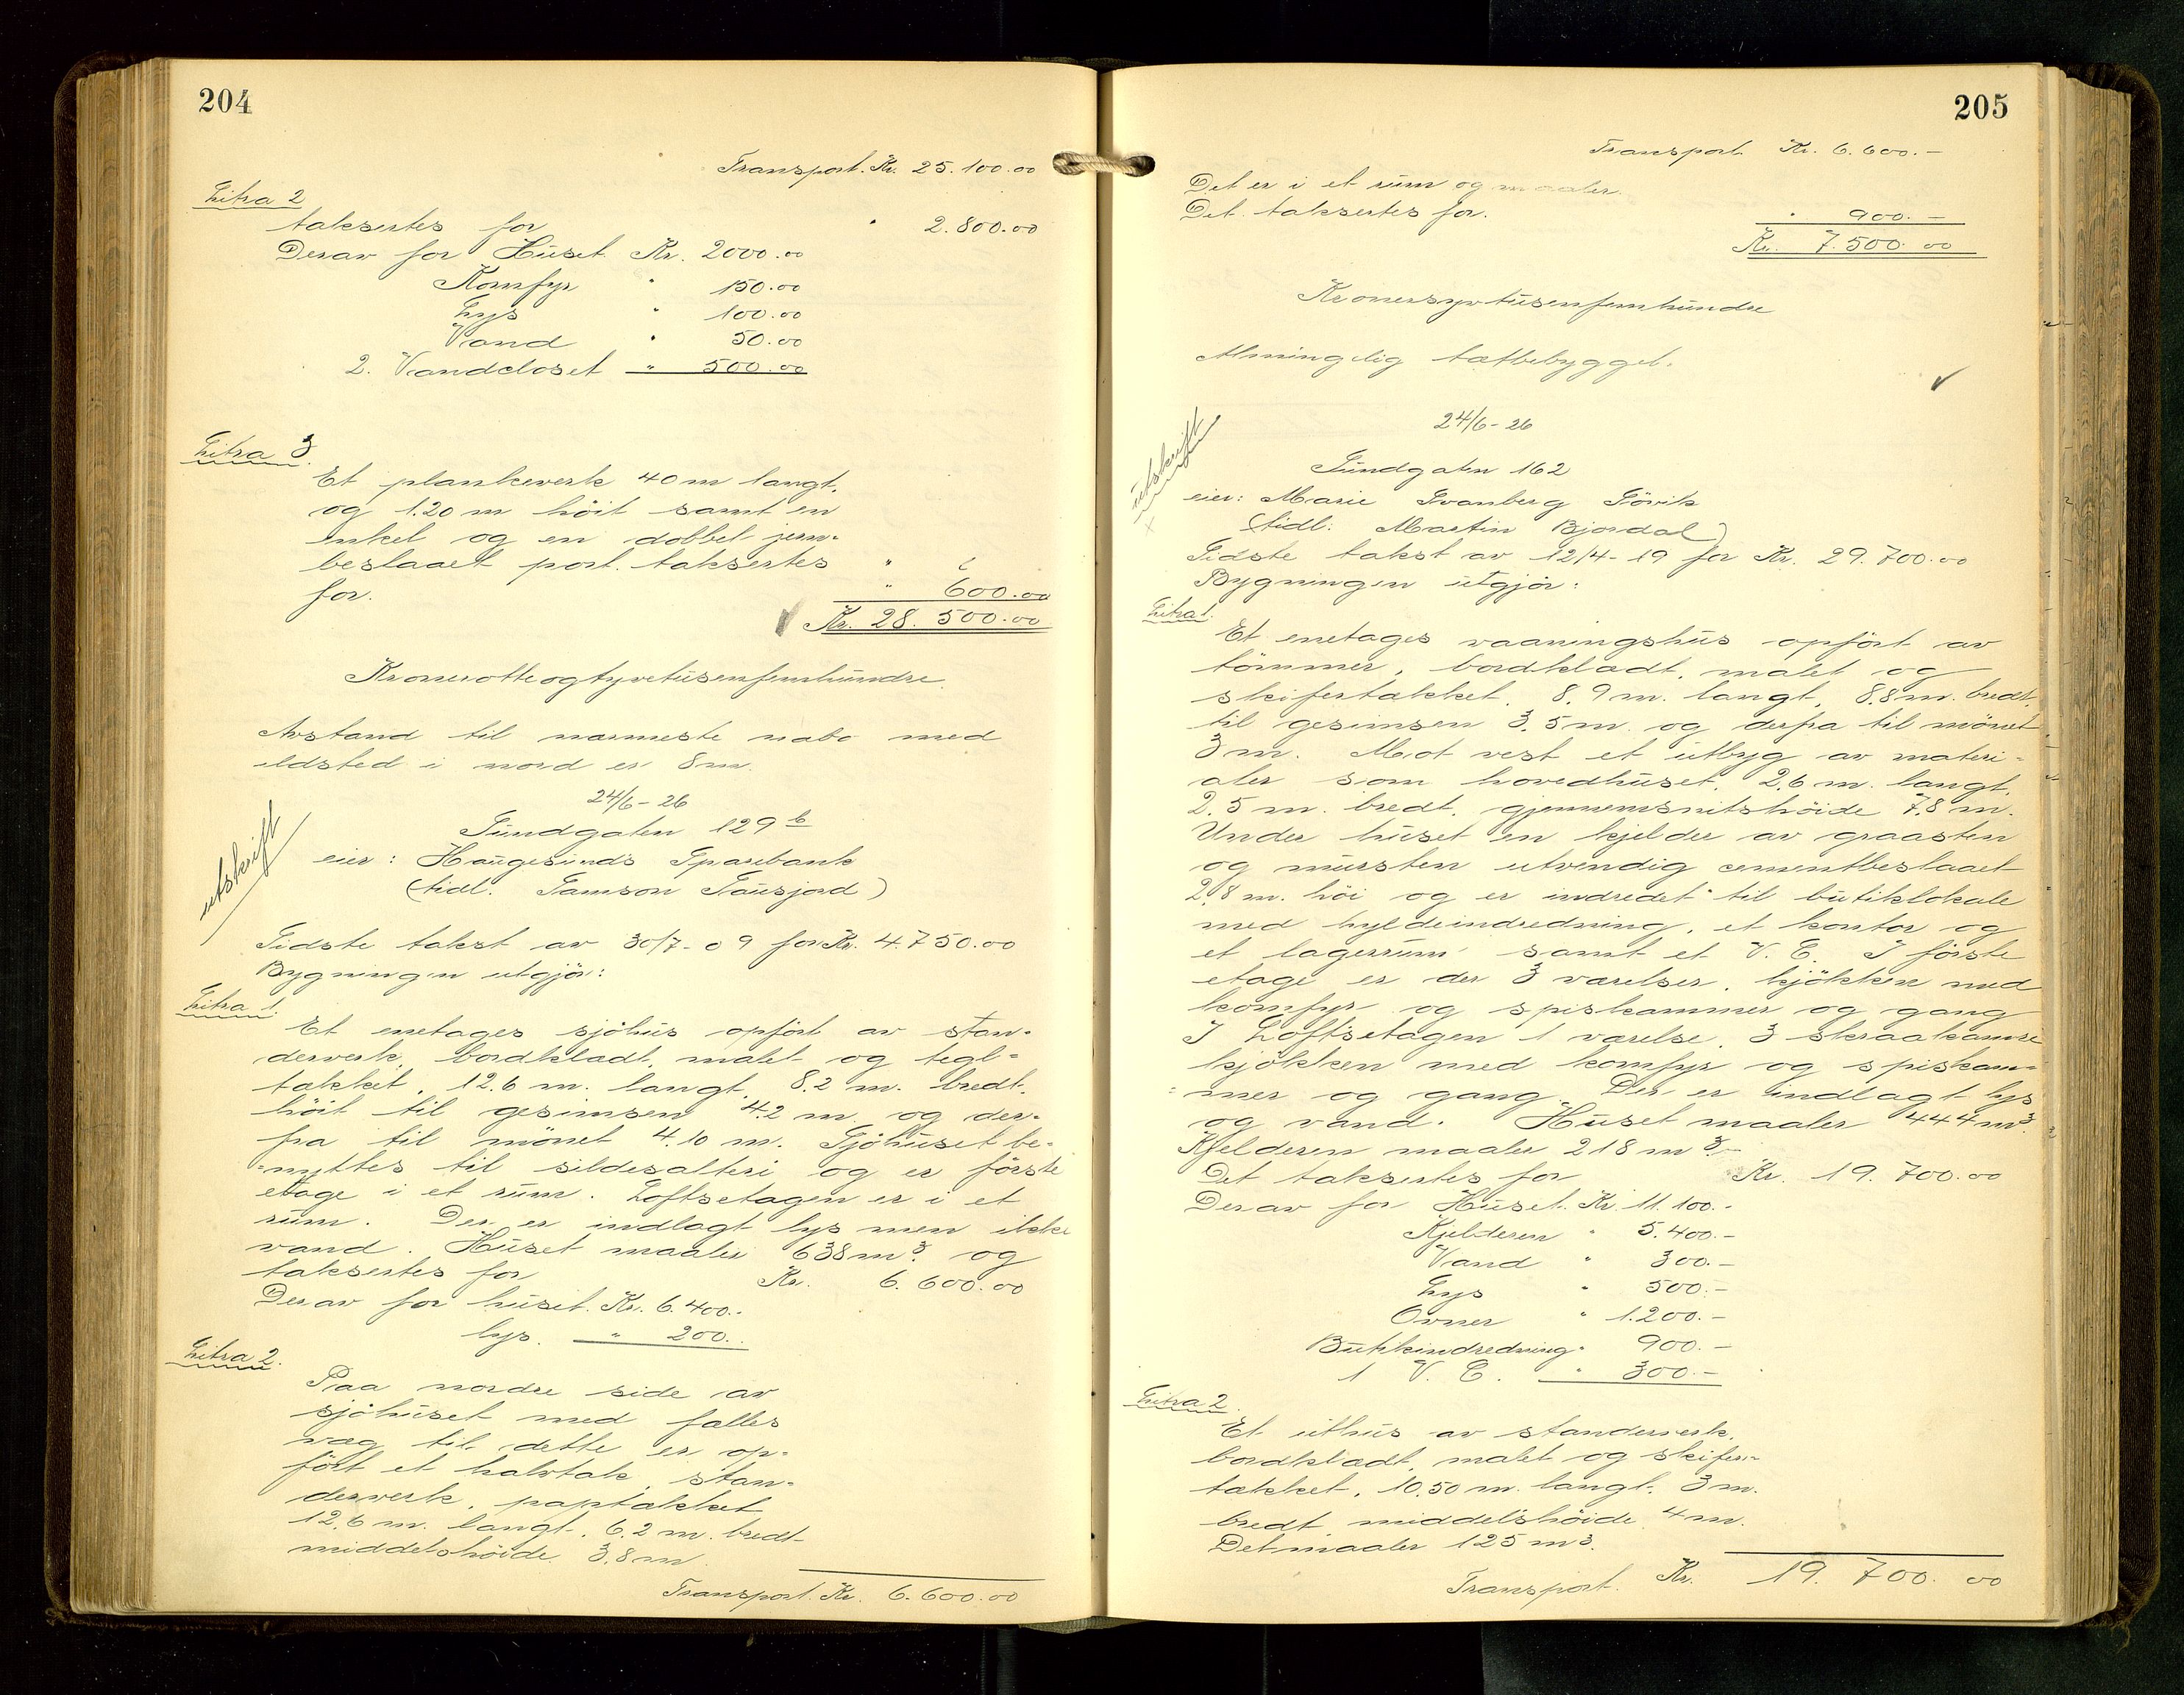 204
Transport. Kr. 25.100.00
Litra 2
taksertes for " 2.800.00
Derav for Huset Kr. 2000.00
Komfyr " 150.00
Lys " 100.00
Vand " 50.00
2. Vandcloset " 500.00
Litra 3.
Et plankeverk 40 m langt.
og 1.20 m höit samt en
enkel og en dobbel jern-
beslaaet port. taksertes "
for. " 600.00
Kr. 28.500.00
Kronerotteogtyvetusenfemhundre
Avstand til nærmeste nabo med
ildsted i nord er 8 m.
24/6-26
Sundgaten 129 b
utskrift
eier: Haugesunds Sparebank
(tidl. Samson Sausjord)
Sidste takst av 30/7-09 for Kr. 4.750.00
Bygningen utgjör:
Litra 1.
Et enetages sjöhus opfört av stan-
derverk, bordklædt, malet og tegl-
takket, 12.6 m. langt, 8.2 m. bredt.
höit til gesimsen 4.2 m og der-
fra til mönet 4.10 m. Sjöhuset be-
=nyttes til sildesalteri og er förste
etage i et rum. Loftsetagen er i et
rum. Der er indlagt lys men ikke
vand. Huset maaler 638 m3. og
taksertes for Kr. 6.600.00
Derav for huset. Kr. 6.400.-
lys. " 200.-
Litra 2.
Paa nordre side av
sjöhuset med fælles
væg til dette er op-
fört et halvtak, stan-
derverk, paptækket
12,6 m. langt. 6.2 m. bredt
middelshöide 3,8 m.
Transport. Kr. 6.600.00
205
Transport Kr. 6.600.-
Det er i et rum og maaler.
Det taksertes for. " 900.-
Kr. 7.500.00
Kronersyvtusenfemhundre
Almingelig tætbebygget.
24/6-26
utskrift
Sundgaten 162
eier: Marie Svanberg Sörvik
(tidl: Martin Bjordal)
Sidste takst av 12/4-19 for Kr. 29.700.00
Bygningen utgjör:
Litra 1.
Et enetages vaaningshus opfört av
tömmer, bordklædt, malet og
skifertækket. 8,9 m. langt, 8,8 m. bredt.
til gesimsen 3,5 m. og derfra til mönet
3 m. Mot vest et utbyg av materi-
aler som hovedhuset. 2,6 m. langt.
2,5 m. bredt, gjennemsnitshöide 7,8 m.
Under huset en kjelder av graasten
og mursten utvendig cementbeslaaet
2,8 m. höi og er indredet til butiklokale
med hyldeindredning, et kontor og
et lagerrum samt et V. C. I förste
etage er der 3 værelser, kjökken med
komfyr og spiskammer og gang
I Loftsetagen 1 værelse, 3 skraakamre
kjökken med komfyr og spiskam-
=mer og gang. Der er indlagt lys
og vand. Huset maaler 444 m3.
Kjelderen maaler 218 m3.-
Det taksertes for Kr. 19.700.00
Derav for Huset. Kr. 11.100.-
Kjelderen " 5.400.-
Vand " 300.-
Lys " 500.-
Ovner " 1.200.-
Butikindredning " 900.-
1 V. C. " 300.-
Litra 2.
Et uthus av standerverk,
bordklædt, malet og skifer-
tækket, 10,50 m. langt. 3 m.
bredt middelshöide 4 m.
Det maaler 125 m3.
Transport. Kr. 19.700.00